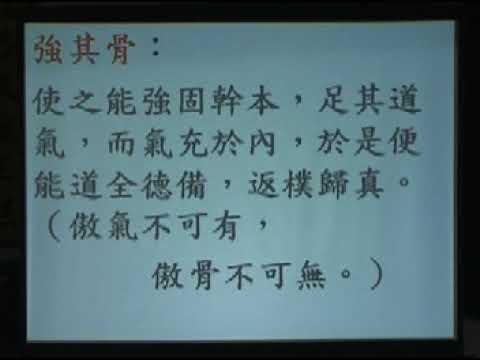 強其骨：
使之能強固幹本，足其道
氣，而氣充於內，於是便
能道全德備，返樸歸真。
（傲氣不可有，
傲骨不可無。）